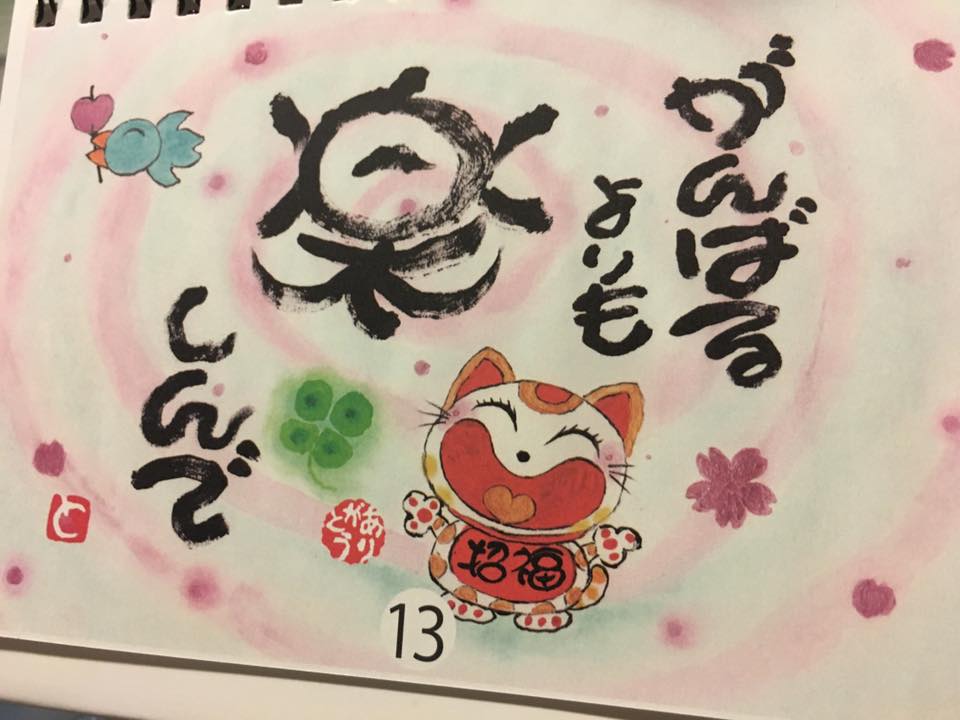 がんばる
よりも
楽
しんで
ありがとう
招福
と
13